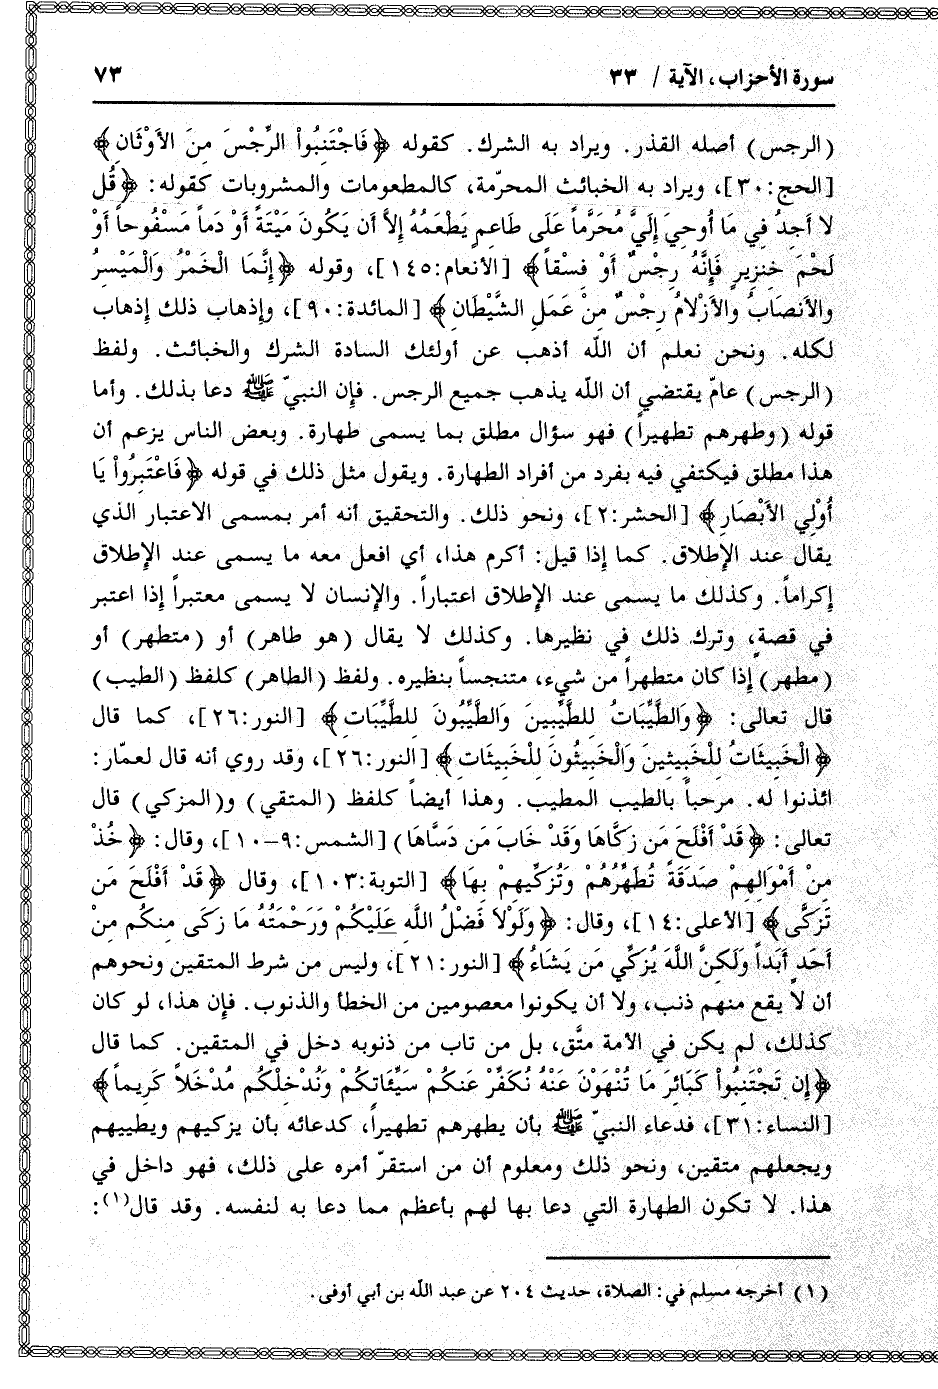 سورة الأحزاب، الآية / ٣٣
٧٣
(الرجس) أصله القذر. ويراد به الشرك. كقوله ﴿فَاجْتَنِبُواْ الرِّجْسَ مِنَ الأَوْثَانِ﴾
[الحج:٣٠]، ويراد به الخبائث المحرّمة، كالمطعومات والمشروبات كقوله: ﴿قُل
لا أَجِدُ فِي مَا أُوحِيَ إِلَيَّ مُحَرَّماً عَلَى طَاعِمٍ يَطْعَمُهُ إِلاَّ أَن يَكُونَ مَيْتَةً أَوْ دَماً مَسْفُوحاً أَوْ
لَحْمَ خِنزِيرٍ فَإِنَّهُ رِجْسٌ أَوْ فِسْقاً﴾ [الأنعام:١٤٥]، وقوله ﴿إِنَّمَا الْخَمْرُ وَالْمَيْسِرُ
والأنصَابُ والأَزْلامُ رِجْسٌ مِنْ عَمَلِ الشَّيْطَانِ﴾ [المائدة:٩٠]، وإذهاب ذلك إذهاب
لكله. ونحن نعلم أن اللّه أذهب عن أولئك السادة الشرك والخبائث. ولفظ
(الرجس) عامّ يقتضي أن اللّه يذهب جميع الرجس. فإن النبيّ ﷺ دعا بذلك. وأما
قوله (وطهرهم تطهيراً) فهو سؤال مطلق بما يسمى طهارة. وبعض الناس يزعم أن
هذا مطلق فيكتفي فيه بفرد من أفراد الطهارة. ويقول مثل ذلك في قوله ﴿فَاعْتَبِرُواْ يَا
أُوْلِي الأَبْصَارِ﴾ [الحشر:٢]، ونحو ذلك. والتحقيق أنه أمر بمسمى الاعتبار الذي
يقال عند الإطلاق. كما إذا قيل: أكرم هذا، أي افعل معه ما يسمى عند الإطلاق
إكراماً. وكذلك ما يسمى عند الإطلاق اعتباراً. والإنسان لا يسمى معتبراً إذا اعتبر
في قصةٍ، وترك ذلك في نظيرها. وكذلك لا يقال (هو طاهر) أو (متطهر) أو
(مطهر) إذا كان متطهراً من شيء، متنجساً بنظيره. ولفظ (الطاهر) كلفظ (الطيب)
قال تعالى: ﴿وَالطَّيِّبَاتُ لِلطَّيِّبِينَ وَالطَّيِّبُونَ لِلطَّيِّبَاتِ﴾ [النور:٢٦]، كما قال
﴿الْخَبِيثَاتُ لِلْخَبِيثِينَ وَالْخَبِيثُونَ لِلْخَبِيثَاتِ﴾ [النور:٢٦]، وقد روي أنه قال لعمّار:
ائذنوا له. مرحباً بالطيب المطيب. وهذا أيضاً كلفظ (المتقي) و(المزكي) قال
تعالى: ﴿قَدْ أَفْلَحَ مَن زَكَّاهَا وَقَدْ خَابَ مَن دَسَّاهَا) [الشمس:٩-١٠]، وقال: ﴿خُذْ
مِنْ أَمْوَالِهِمْ صَدَقَةً تُطَهِّرُهُمْ وَتُزَكِّيهِمْ بِهَا﴾ [التوبة:١٠٣]، وقال ﴿قَدْ أَفْلَحَ مَن
تَزَكَّى﴾ [الأعلى:١٤]، وقال: ﴿وَلَوْلاَ فَضْلُ اللَّهِ عَلَيْكُمْ وَرَحْمَتُهُ مَا زَكَى مِنكُم مِنْ
أَحَدٍ أَبَداً وَلَكِنَّ اللَّهَ يُزَكِّي مَن يَشَاءُ﴾ [النور:٢١]، وليس من شرط المتقين ونحوهم
أن لا يقع منهم ذنب، ولا أن يكونوا معصومين من الخطأ والذنوب. فإن هذا، لو كان
كذلك، لم يكن في الأمة متَّق، بل من تاب من ذنوبه دخل في المتقين. كما قال
﴿إِن تَجْتَنِبُواْ كَبَائِرَ مَا تُنْهَوْنَ عَنْهُ نُكَفِّرْ عَنكُمْ سَيِّئَاتِكُمْ وَنُدْخِلْكُم مُدْخَلاً كَرِيماً﴾
[النساء:٣١]، فدعاء النبيّ ﷺ بأن يطهرهم تطهيراً، كدعائه بأن يزكيهم ويطيبهم
ويجعلهم متقين، ونحو ذلك ومعلوم أن من استقرّ أمره على ذلك، فهو داخل في
هذا. لا تكون الطهارة التي دعا بها لهم بأعظم مما دعا به لنفسه. وقد قال(١):
(١) أخرجه مسلم في: الصلاة، حديث ٢٠٤ عن عبد اللّه بن أبي أوفى.